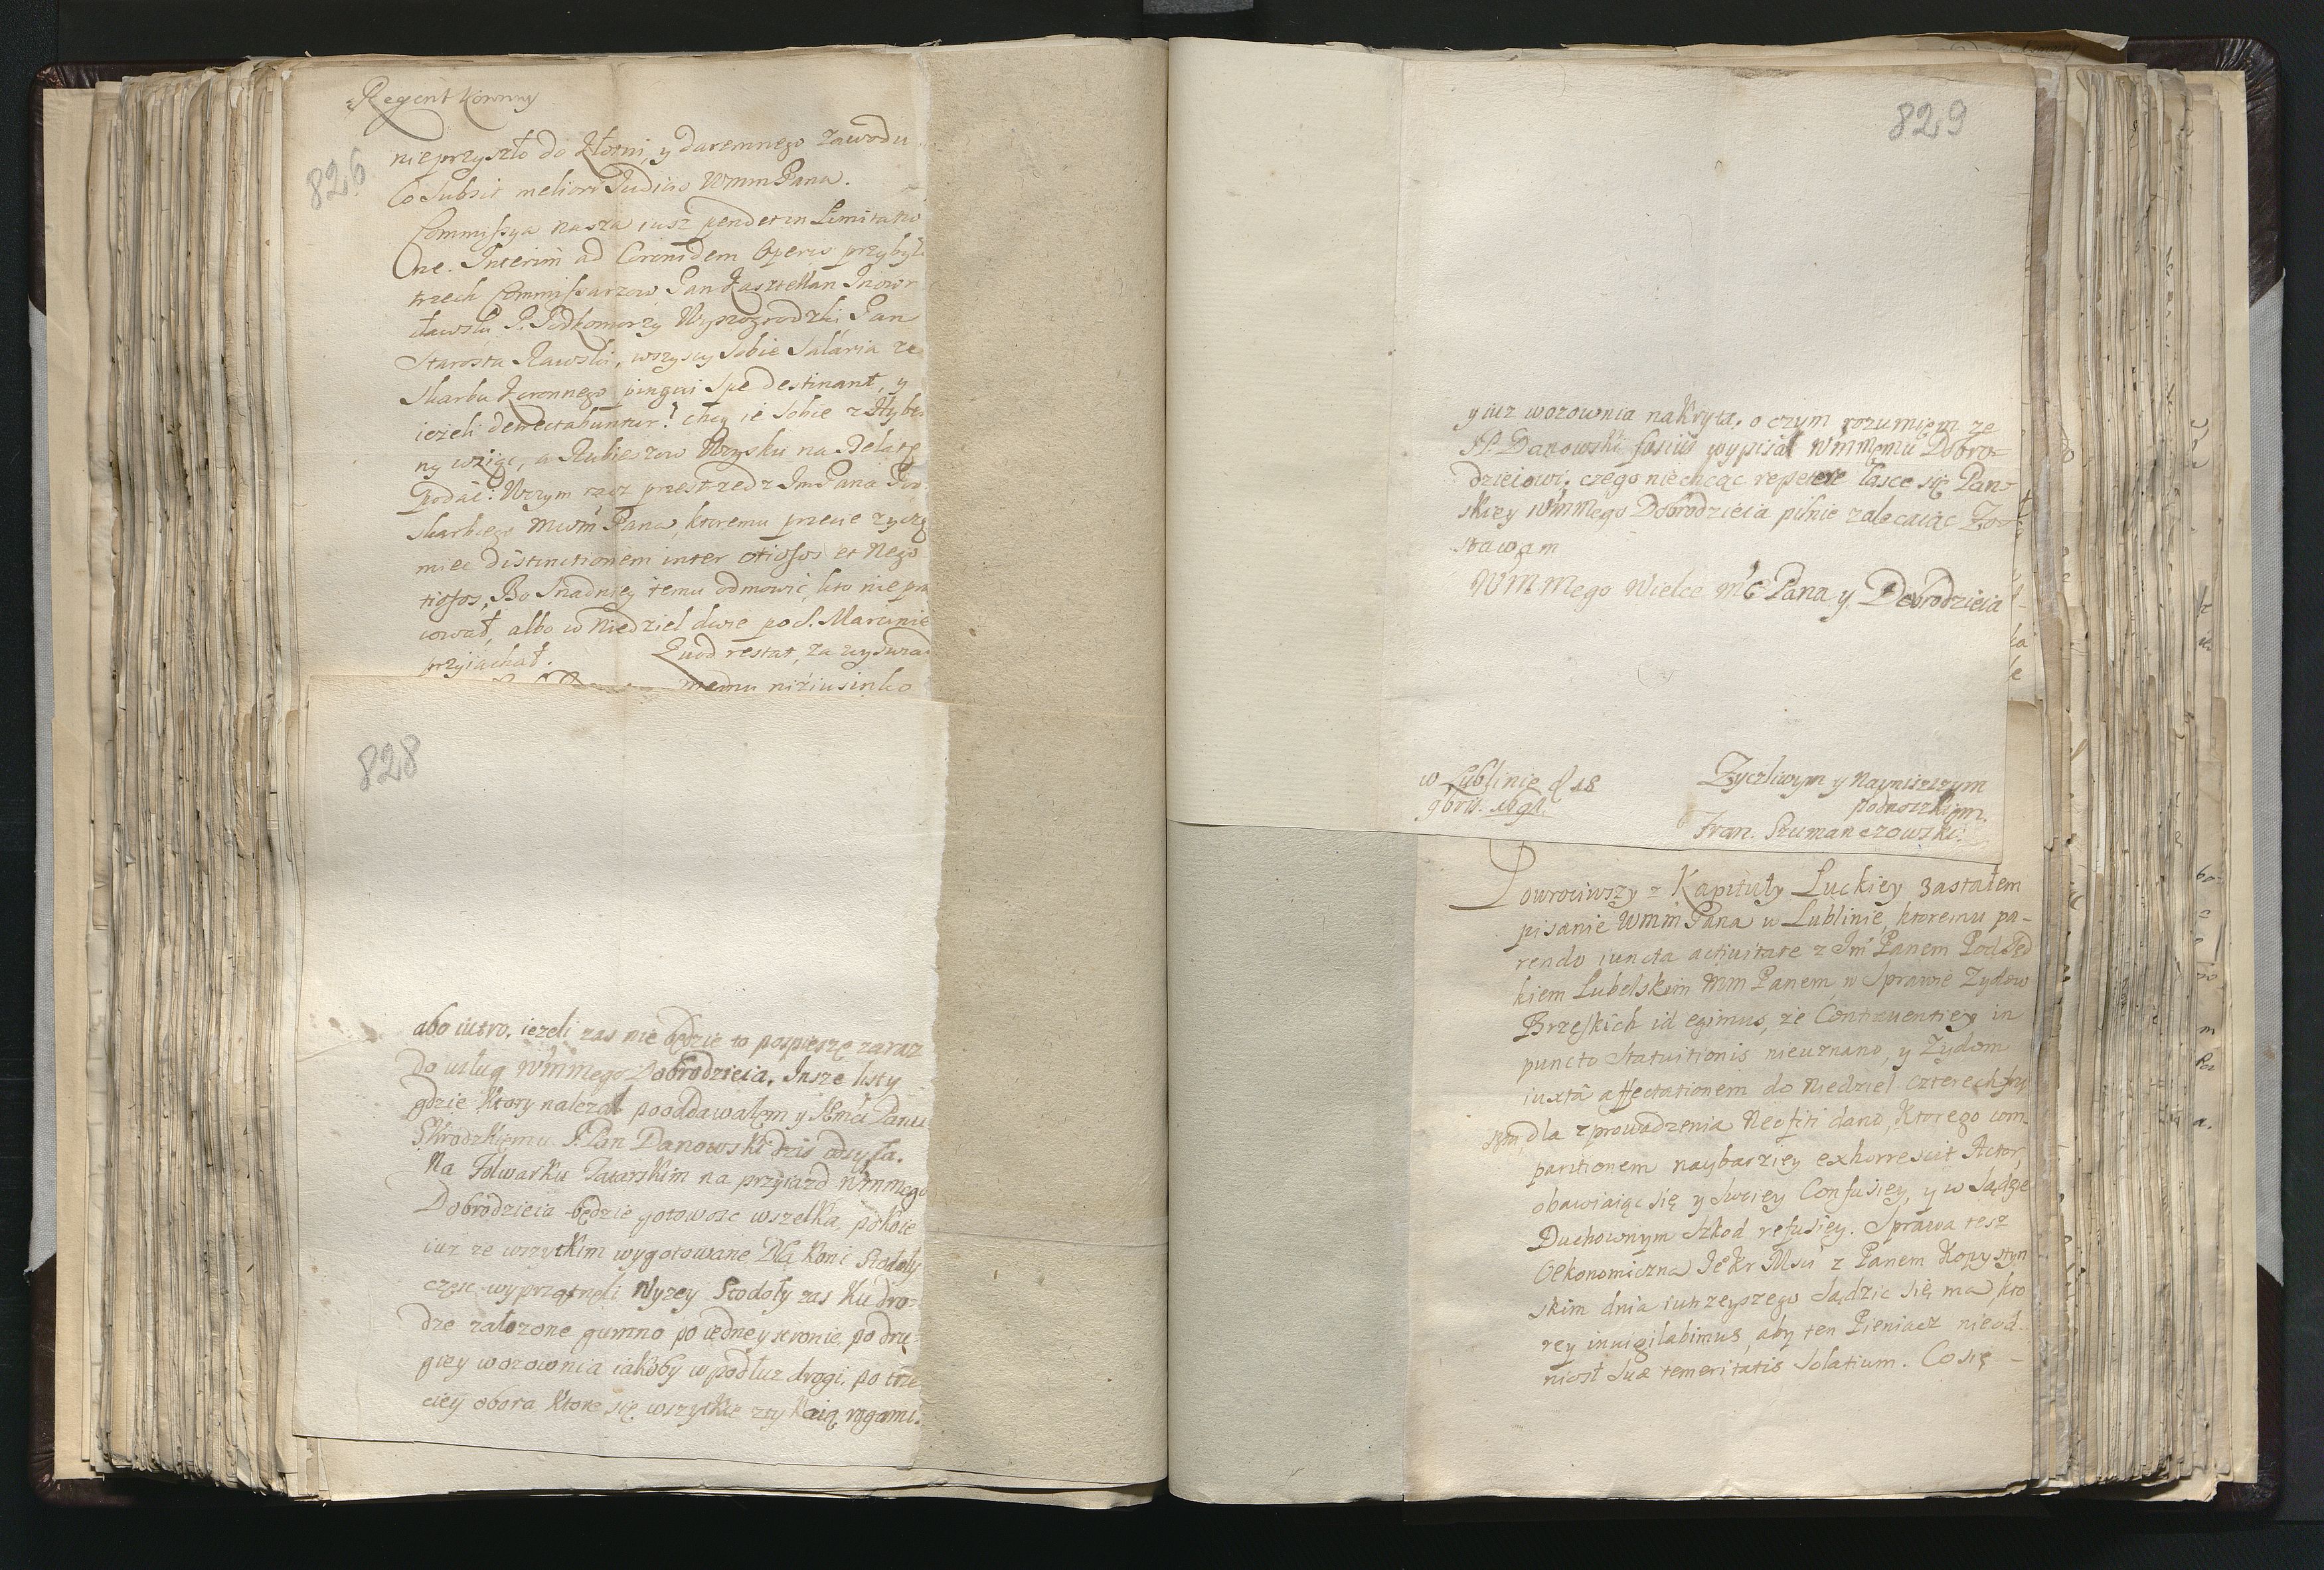 Regent Koronny
826
nieprzyszło do Kłotni, y daremnego zawodu
Co Subsit meliori Judicio WmmPana.
Commissya nasza iusz pendet in Limitatio
One. Interim ad Coronidem Operis przybył
trzech Commissarzow, Pan Kasztellan Inowr
cławski P. Podkomorzy Wyszogrodzki Pan
Starosta Rawski, wszyscy sobie Salaria ze
Skarbu Koronnego pingui Spe destinant, y
ieżeli chcą ie sobie z Hyber
ny wziąc, a Rubieszow na
Podać: przestrzedz JmPana Pod
skarbiego Mwm Pana, ktoremu przecie życzę
miec distinctionem inter otiosos et Nego
tiosos, Bo Snadniey temu odmowić, kto nie pra
cował, albo w Niedziel dwie po S. Marcinie
przyiachał. Quod restat, za
memu niziusinko
828
abo iutro, ieżeli zas nie będzie to pospieszę zaraz
do usług Wmmego Dobrodzieia. Insze listy
gdzie Ktory nalezał pooddawałem y JEmci Panu
Skrodzkiemu P. Pan Danowski dzis odsyła.
Na Folwarku Tatarskim na przyiazd Wmmego
Dobrodzieia będzie gotowosc wszelka, pokoie
iuz ze wszytkim wygotowane Dla Koni Stodoły
częsc wyprzątneli Wyzey Stodoły zas Ku dro=
dze załozone gumno po iedney stronie, po dru=
giey wozownia iakoby wpodłuz drogi, po trze
ciey obora Ktore się wszytkie ztykaią rogami.
829
y iuz wozownia nakryta. o czym rozumiem ze
P. Danowski fusius wypisał Wmmemu Dobro=
dzieiowi, czego niechcąc repetere łasce się Pan=
skiey Wmmego Dobrodzieia pilnie zalecaiąc Zo=
stawam
Wmmego Wielce mć Pana y Dobrodzieia
w Lublinie d 18
9bris.
Zyczliwym y Nayniszszym
podnozkiem.
Fran. Szumanczowski.
Powrociwszy z Kapituły Luckiey zastałem
pisanie Wmm Pana w Lublinie, ktoremu pa-
rendo iuncta activitate z Jm Panem Podsęd
kiem Lubelskim mm Panem, w Sprawie Zydow
Brzeskich id egimus, że Contraventiey in
puncto Statuitionis nieuznano, y Zydom
iuxta affectationem do Niedziel czterech
dla zprowadzenia Neofiti dano, Ktorego com-
paritionem naybarziey exhorrescit Actor,
obawiaiąc się y swoiey Confusiey, y w Sądzie
Duchownym Szkod refusiey. Sprawa tesz
Oekonomiczna JeKr Msci z Panem Kopystyn
skim dnia iutrzeyszego Sądzic się ma, kto
rey invigilabimus, aby ten Pieniacz nieod-
niosł suae temeritatis Solatium. Co się -